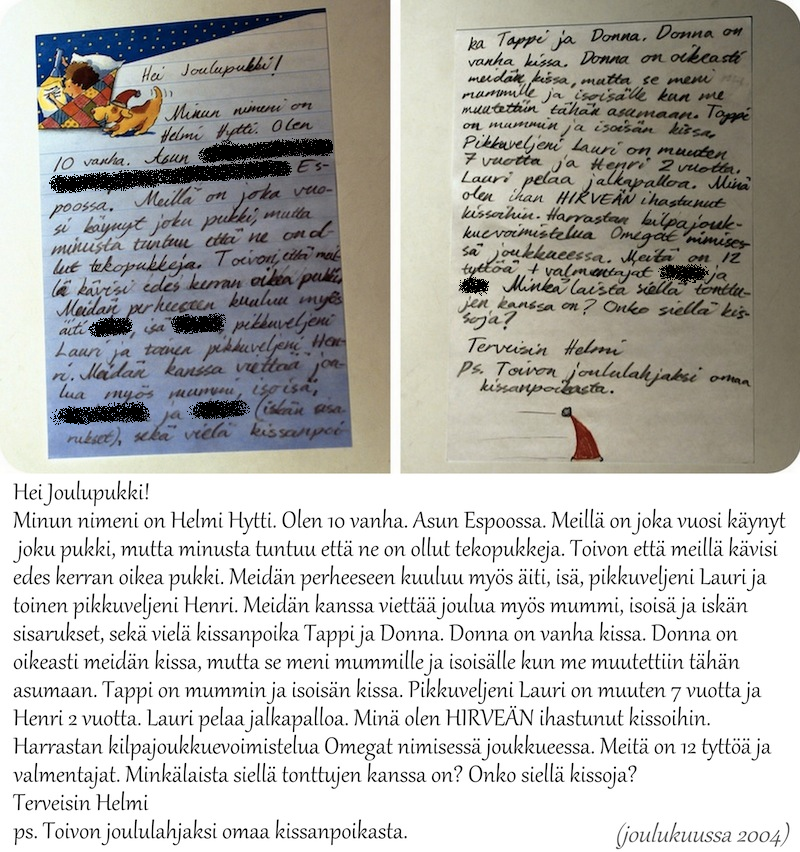 Hei Joulupukki!
Minun nimeni on
Helmi Hytti. Olen
10 vanha. Asun
Es-
poossa. Meillä on joka vuo-
si käynyt joku pukki, mutta
minusta tuntuu että ne on ol-
lut tekopukkeja. Toivon, että mei-
lä kävisi edes kerran oikea pukki.
Meidän perheeseen kuuluu myös
äiti, isä, pikkuveljeni
Lauri ja toinen pikkuveljeni Hen-
ri. Meidän kanssa viettää jou-
lua myös mummi, isoisä,
ja (iskän sisa-
rukset), sekä vielä kissanpoi-
ka Tappi ja Donna. Donna on
vanha kissa. Donna on oikeasti
meidän kissa, mutta se meni
mummille ja isoisälle kun me
muutettiin tähän asumaan. Tappi
on mummin ja isoisän kissa.
Pikkuveljeni Lauri on muuten
7 vuotta ja Henri 2 vuotta.
Lauri pelaa jalkapalloa. Minä
olen ihan HIRVEÄN ihastunut
kissoihin. Harrastan kilpajouk-
kuevoimistelua Omegat nimises-
sä joukkueessa. Meitä on 12
tyttöä + valmentajat ja
Minkälaista siellä tonttu-
jen kanssa on? Onko siellä kis-
soja?
Terveisin Helmi
Ps. Toivon joululahjaksi omaa
kissanpoikasta.
Hei Joulupukki!
Minun nimeni on Helmi Hytti. Olen 10 vanha. Asun Espoossa. Meillä on joka vuosi käynyt
joku pukki, mutta minusta tuntuu että ne on ollut tekopukkeja. Toivon että meillä kävisi
edes kerran oikea pukki. Meidän perheeseen kuuluu myös äiti, isä, pikkuveljeni Lauri ja
toinen pikkuveljeni Henri. Meidän kanssa viettää joulua myös mummi, isoisä ja iskän
sisarukset, sekä vielä kissanpoika Tappi ja Donna. Donna on vanha kissa. Donna on
oikeasti meidän kissa, mutta se meni mummille ja isoisälle kun me muutettiin tähän
asumaan. Tappi on mummin ja isoisän kissa. Pikkuveljeni Lauri on muuten 7 vuotta ja
Henri 2 vuotta. Lauri pelaa jalkapalloa. Minä olen HIRVEÄN ihastunut kissoihin.
Harrastan kilpajoukkuevoimistelua Omegat nimisessä joukkueessa. Meitä on 12 tyttöä ja
valmentajat. Minkälaista siellä tonttujen kanssa on? Onko siellä kissoja?
Terveisin Helmi
ps. Toivon joululahjaksi omaa kissanpoikasta.
(joulukuussa 2004)